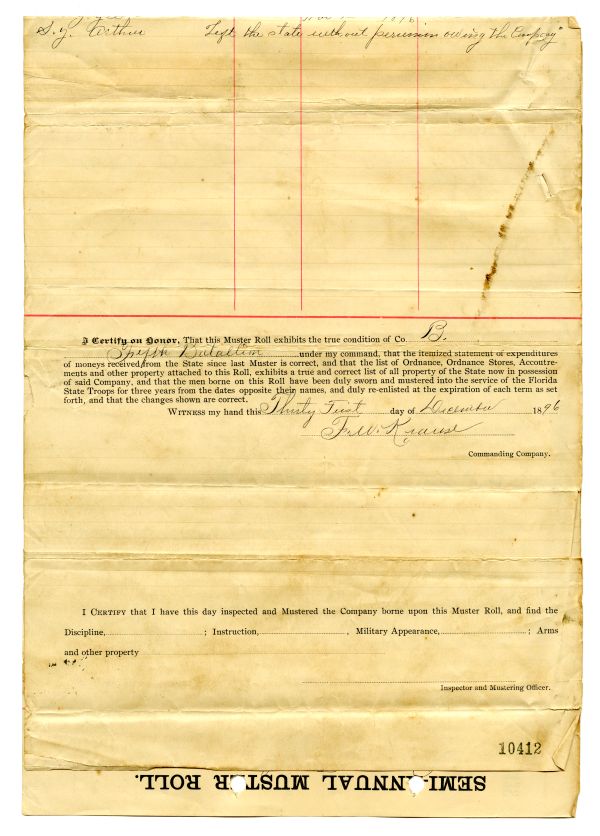 1896
S. J. Arthur Left the state without permission owing the Company"
I Certify on Honor, That this Muster Roll exhibits the true condition of Co. B.
Fifth Batallion under my command, that the itemized statement of expenditures
of moneys received from the State since last Muster is correct, and that the list of Ordnance, Ordnance Stores, Accoutre-
ments and other property attached to this Roll, exhibits a true and correct list of all property of the State now in possession
of said Company, and that the men borne on this Roll have been duly sworn and mustered into the service of the Florida
State Troops for three years from the dates opposite their names, and duly re-enlisted at the expiration of each term as set
forth, and that the changes shown are correct.
WITNESS my hand this Thirty First day of December 1896
F. W. Krause
Commanding Company.
I CERTIFY that I have this day inspected and Mustered the Company borne upon this Muster Roll, and find the
Discipline, ; Instruction, , Military Appearance, ; Arms
and other property
Inspector and Mustering Officer.
10412
SEMI-ANNUAL MUSTER ROLL.